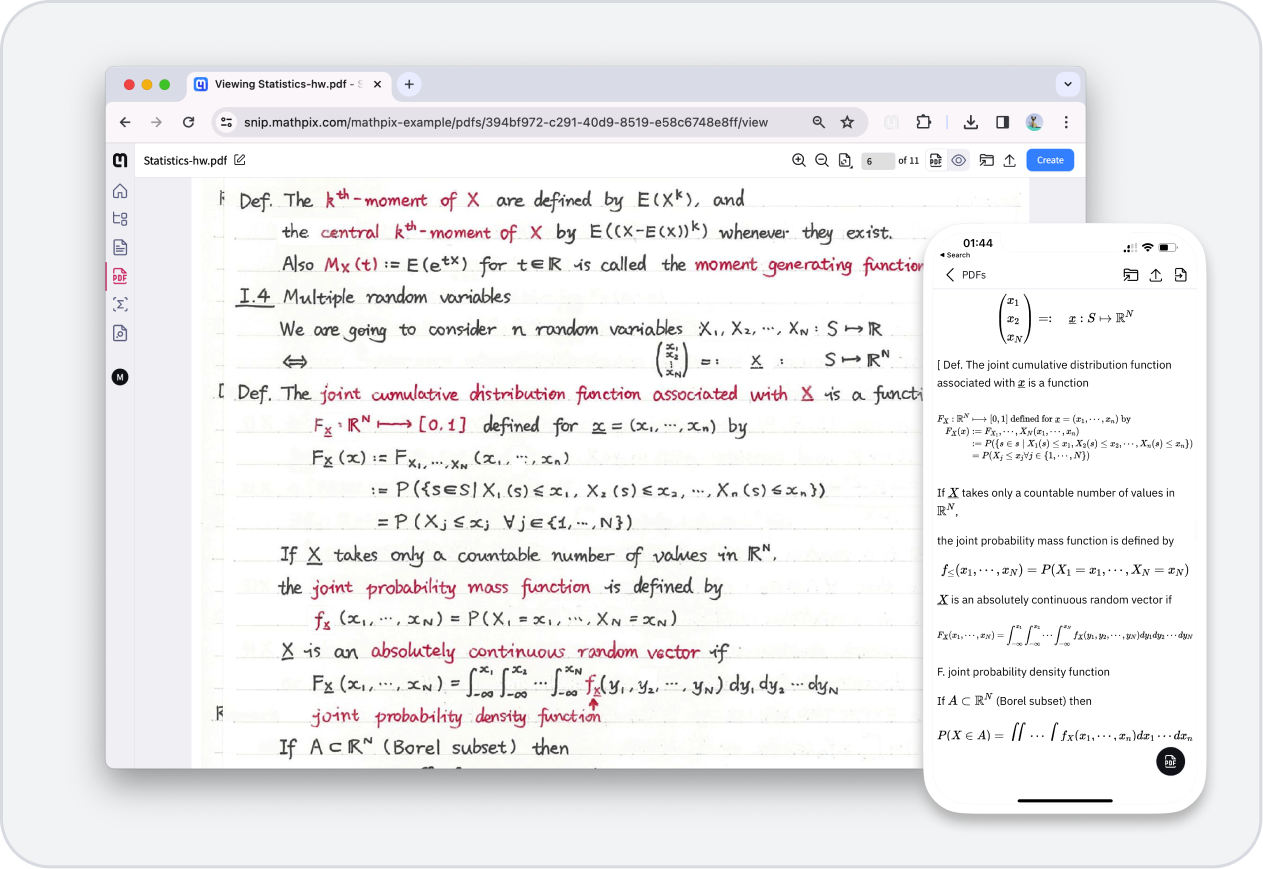 Viewing Statistics-hw.pdf - S
snip.mathpix.com/mathpix-example/pdfs/394bf972-c291-40d9-8519-e58c6748e8ff/view
Statistics-hw.pdf
6 of 11
PDF
Create
PDF
M
Def. The kᵗʰ-moment of X are defined by E(Xᵏ), and
the central kᵗʰ-moment of X by E((X-E(X))ᵏ) whenever they exist.
Also M_X(t) := E(e^{tX}) for t∈ℝ is called the moment generating function
I.4 Multiple random variables
We are going to consider n random variables X₁, X₂, ⋯, X_N : S ↦ ℝ
⇔ (x₁ x₂ ⋮ x_N) =: X : S ↦ ℝᴺ
[ Def. The joint cumulative distribution function associated with X is a functi
F_X : ℝᴺ ⟼ [0,1] defined for x = (x₁, ⋯, xₙ) by
F_X (x) := F_{X₁, ⋯, X_N} (x₁, ⋯, xₙ)
:= P({s∈S| X₁(s)≤x₁, X₂(s)≤x₂, ⋯, Xₙ(s)≤xₙ})
= P(Xⱼ ≤ xⱼ ∀j∈{1, ⋯, N})
If X takes only a countable number of values in ℝᴺ,
the joint probability mass function is defined by
f_X (x₁, ⋯, x_N) = P(X₁ = x₁, ⋯, X_N = x_N)
X is an absolutely continuous random vector if
F_X (x₁, ⋯, x_N) = ∫_{-∞}^{x₁} ∫_{-∞}^{x₂} ⋯ ∫_{-∞}^{x_N} f_X(y₁, y₂, ⋯, y_N) dy₁ dy₂ ⋯ dy_N
joint probability density function
If A⊂ℝᴺ (Borel subset) then
01:44
Search
PDFs
(x₁ x₂ x_N) =: x : S ↦ ℝᴺ
[ Def. The joint cumulative distribution function
associated with x is a function
F_X : ℝᴺ ⟼ [0,1] defined for x = (x₁, ⋯, xₙ) by
F_X(x) := F_{X₁}, ⋯, X_N(x₁, ⋯, xₙ)
:= P({s ∈ s | X₁(s) ≤ x₁, X₂(s) ≤ x₂, ⋯, Xₙ(s) ≤ xₙ})
= P(Xⱼ ≤ xⱼ∀j ∈ {1, ⋯, N})
If X takes only a countable number of values in
ℝᴺ,
the joint probability mass function is defined by
f_≤(x₁, ⋯, x_N) = P(X₁ = x₁, ⋯, X_N = x_N)
X is an absolutely continuous random vector if
F_X(x₁, ⋯, x_N) = ∫_{-∞}^{x₁} ∫_{-∞}^{x₂} ⋯ ∫_{-∞}^{x_N} f_X(y₁, y₂, ⋯, y_N)dy₁dy₂ ⋯ dy_N
F. joint probability density function
If A ⊂ ℝᴺ (Borel subset) then
P(X ∈ A) = ∬ ⋯ ∫ f_X(x₁, ⋯, xₙ)dx₁ ⋯ dxₙ
PDF